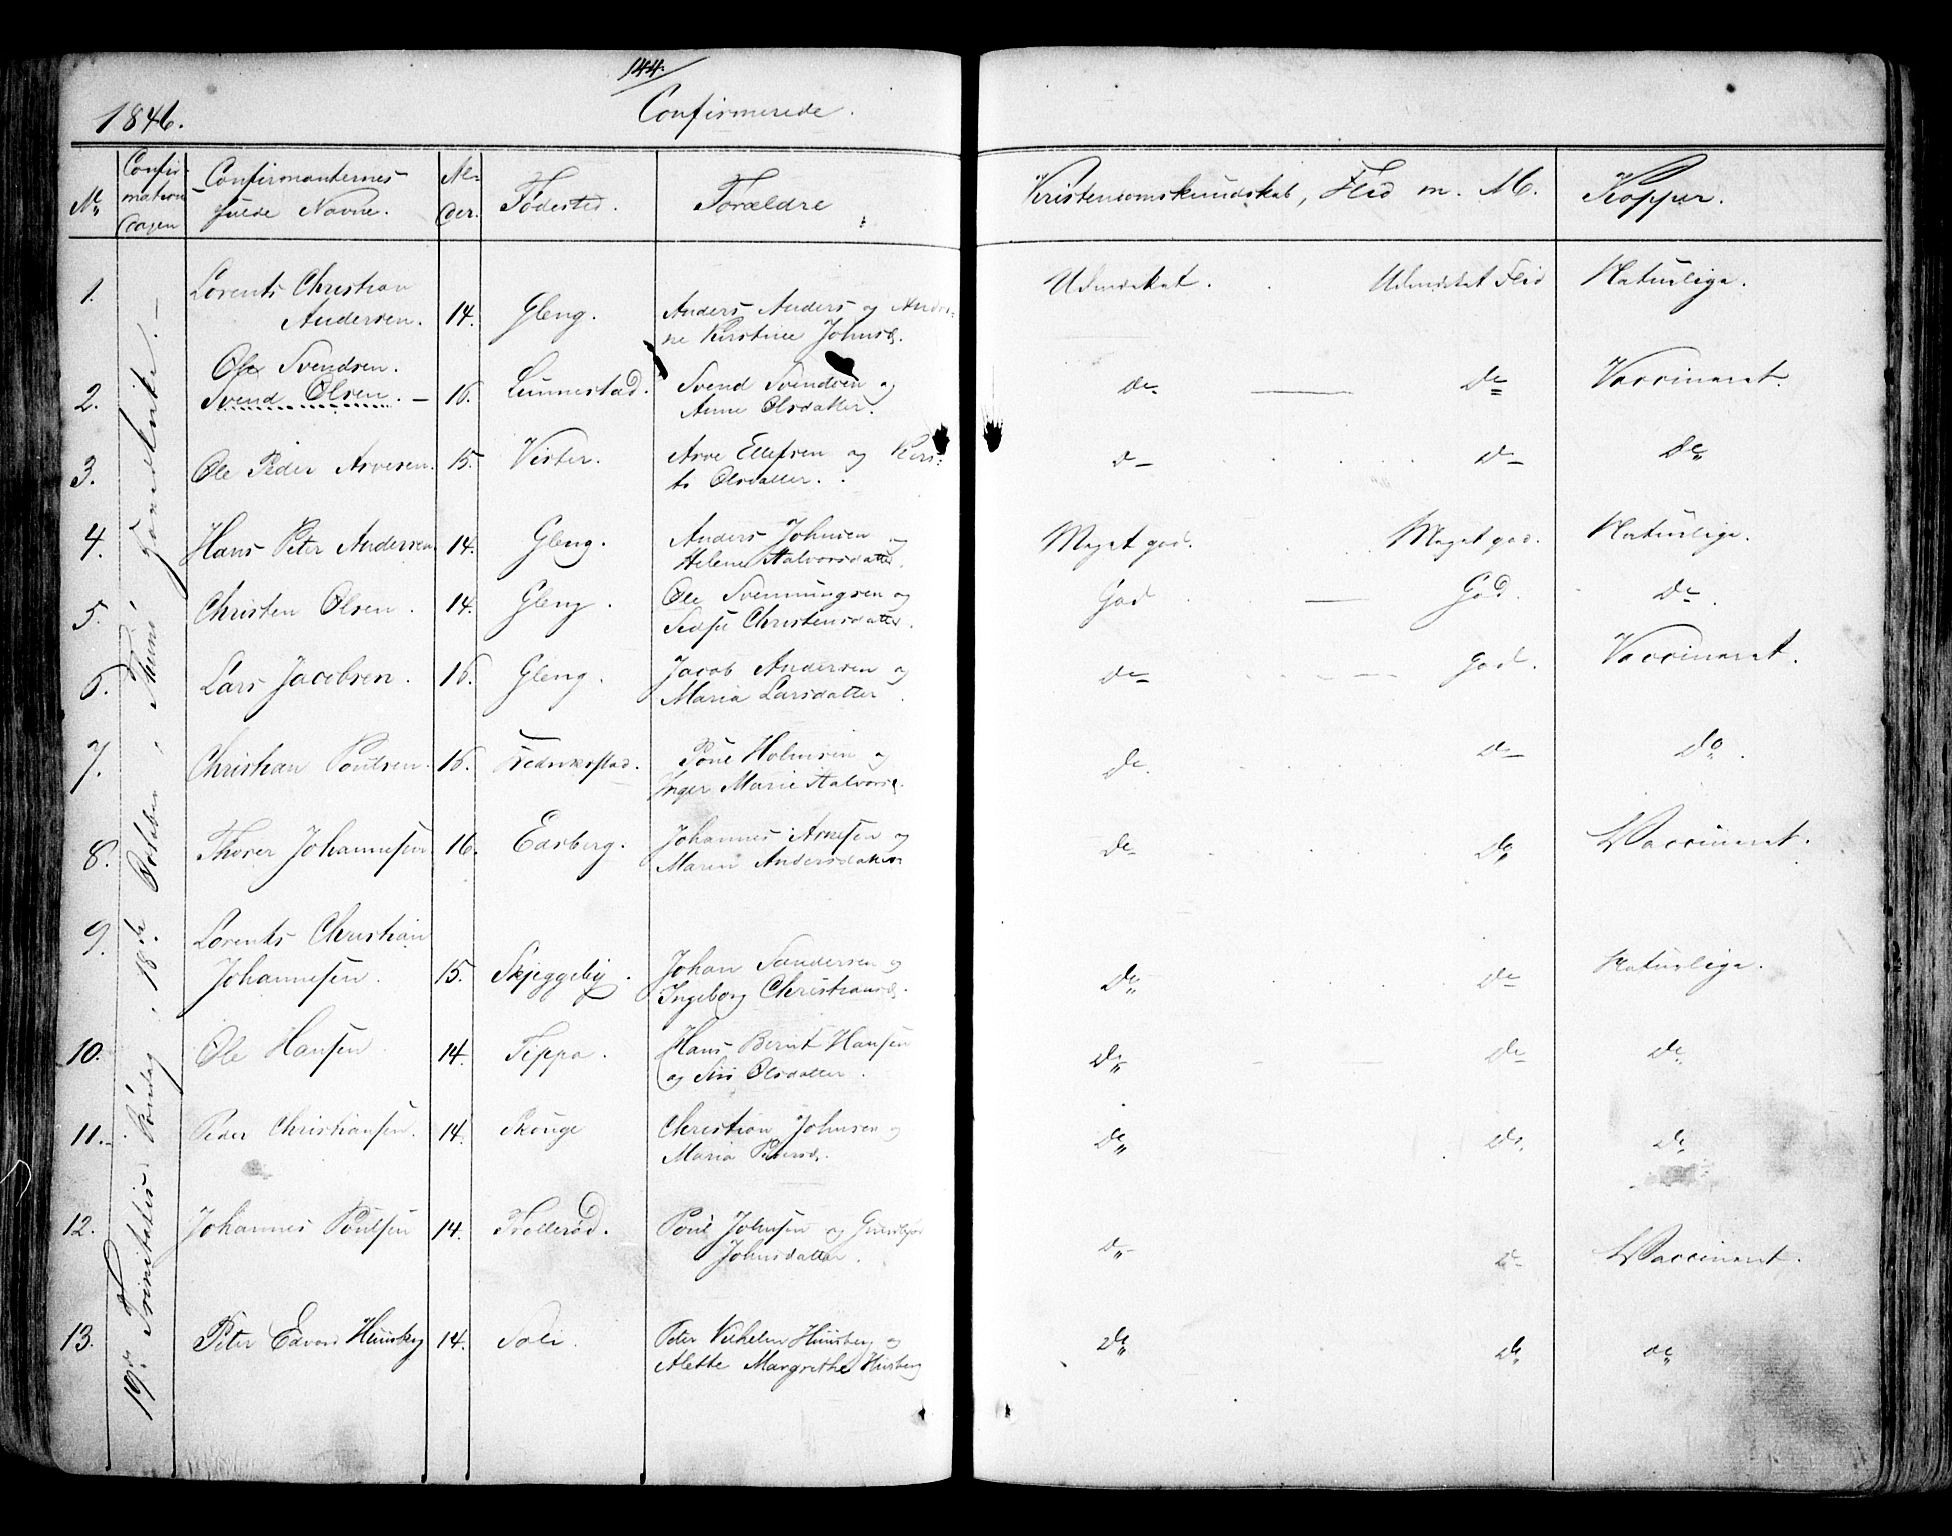 144.
1846.
Confirmerede.
No
Confir-
mations
Dagen
Confirmanternes
fulde Navne.
Al-
der.
Fødested.
Forældre
Kristendomskundskab, Flid m. M.
Kopper.
19de Trinitatis Søndag, 18de October,
1.
Lorents Christian
Andersen.
14.
Gleng.
Anders Anders og Andri-
ne Kirstine Johnsd.
Udmærket.
Udmærket Flid
Naturlige.
2.
Ole Svendsen.
Svend Olsen.
16.
Lunnestad.
Svend Svendsen og
Anne Olsdatter.
do
do
Vaccineret.
3.
Ole Peder Arvesen.
15.
Vister.
Arve Ellefsen og Kirs-
ti Olsdatter.
do
do
do
4.
Hans Peter Andersen
14.
Gleng.
Anders Johnsen og
Helene Halvorsdatter.
Meget god.
Meget god.
Naturlige.
5.
Christen Olsen.
14.
Gleng.
Ole Svenningsen og
Christensdatter.
God
God.
do.
6.
Lars Jacobsen.
16.
Gleng.
Jacob Andersen og
Maria Larsdatter.
do
God.
Vaccineret.
7.
Christian Poulsen.
16.
Fredrikstad.
Poul Holmsen og
Inger Marie Halvorsd.
do.
do
do.
8.
Thorer Johannesen
16.
Edsberg.
Johannes Arnesen og
Maren Andersdatter
do
do
Vaccineret.
9.
Lorents Christian
Johannesen.
15.
Skjeggeby.
Johan Sandersen og
Ingeborg Christiansd.
do
do
Naturlige.
10.
Ole Hansen.
14.
Tippa.
Hans Bernt Hansen
og Siri Olsdatter.
do
do
do.
11.
Peder Christiansen.
14.
Skouge
Christian Johnsen og
Maria Pedersd.
do
do.
do.
12.
Johannes Poulsen
14.
Trollerød.
Poul Johnsen og
Johnsdatter.
do
do
Vaccineret.
13.
Peter Edvard Huusberg
14.
Soli
Peter Vilhelm Huusberg og
Alette Margrethe Husberg
do
do
do